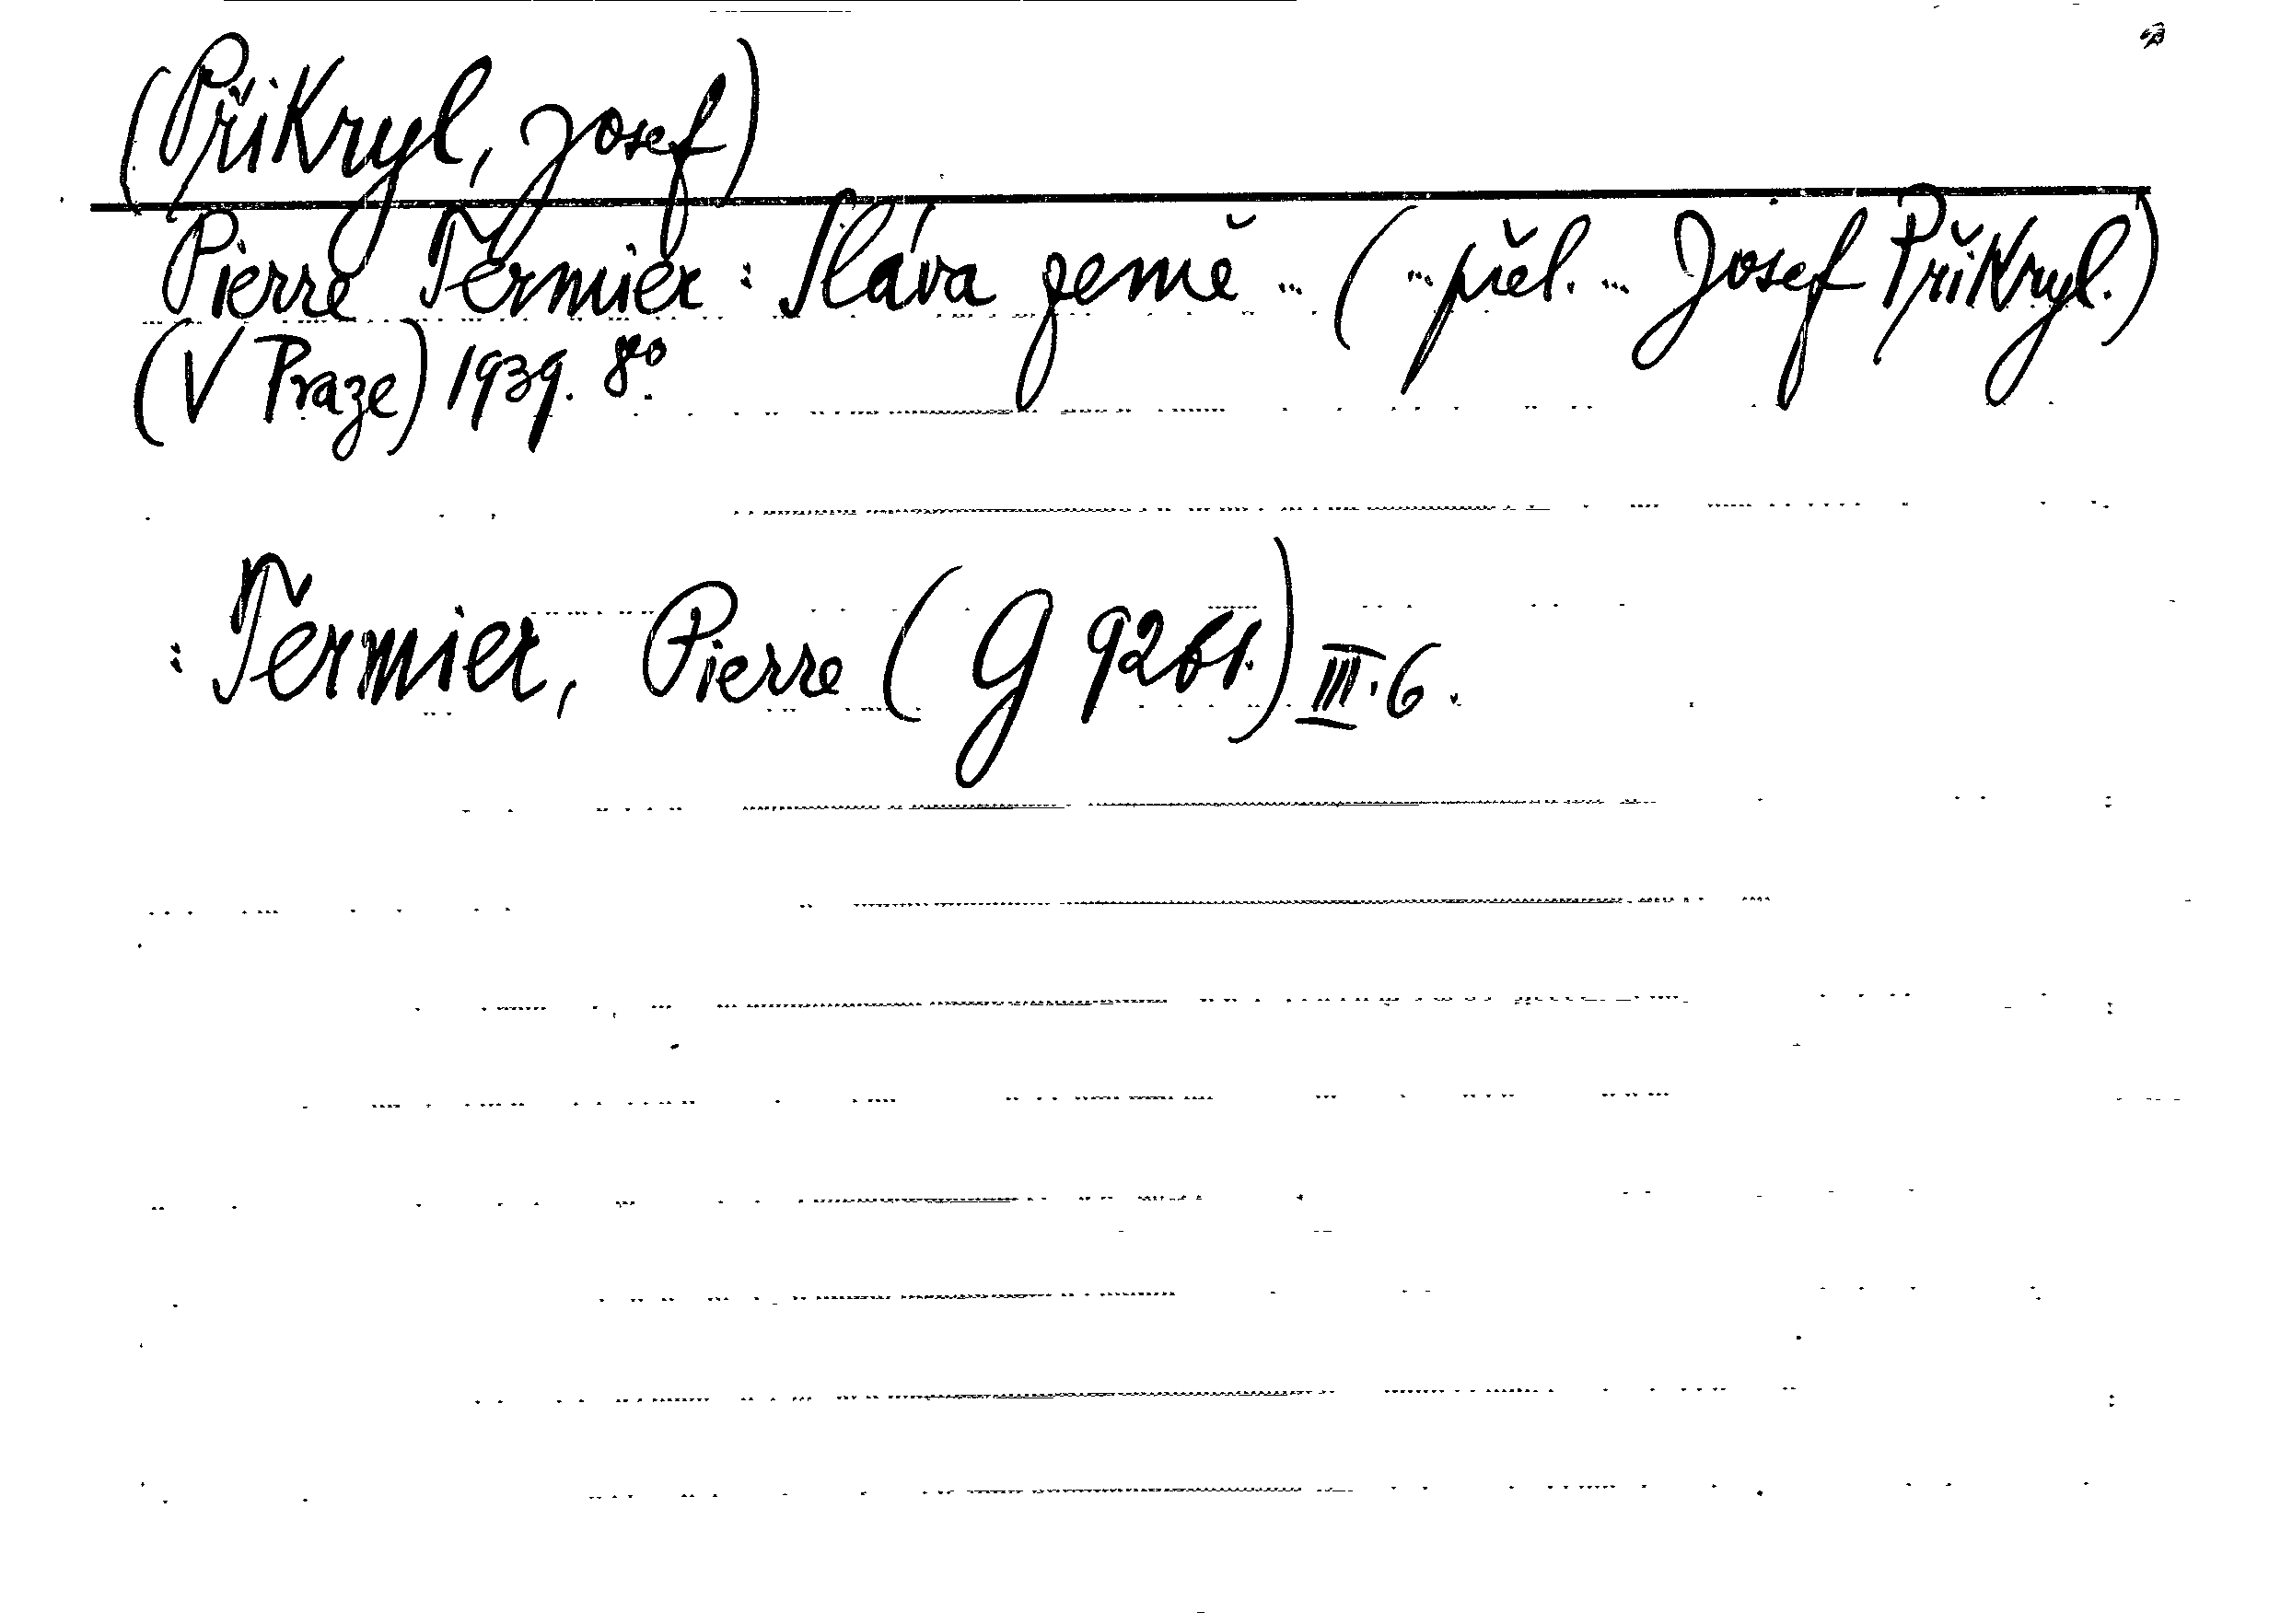 (Přikryl, Josef)
Pierre Termier : Sláva země ... ( ... přel. ... Josef Přikryl.)
(V Praze) 1939. 8°.
: Termier, Pierre (G 9261.) III. 6.